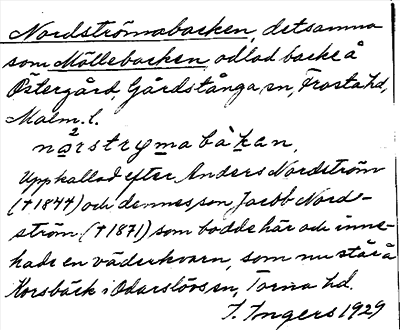 Nordströmabacken, detsamma
som Möllebacken, odlad backe å
Östergård, Gårdstånga sn, Frosta hd,
Malm. l.
no²rstrymabàkan,
Uppkallad efter Anders Nordström
(†1844) och dennes son Jacob Nord-
ström (†1871) som bodde här och inne-
hade en väderkvarn, som nu står å
Korsbäck i Odarslövs sn, Torna hd.
I. Ingers 1929